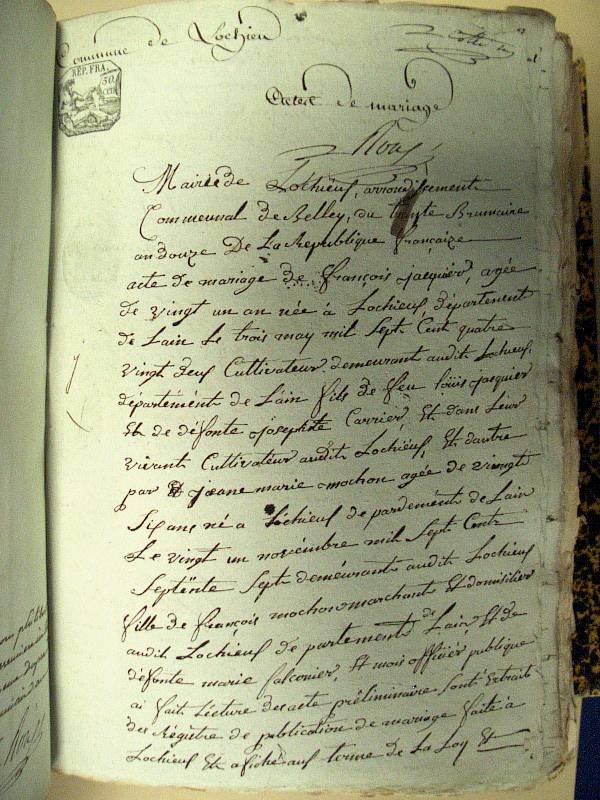 Commune de Lochieu
REP. FRA.
50
cen
Actes de mariage
Mairie de Lochieuf, arrondissement
Communal de Belley, du trente Brumaire
an douze De La Republique françaize
acte de mariage de françois jacquier, agée
de vingt un an née à Lochieuf département
de Lain Le trois may mil Sept Cent quatre
vingt deuf Cultivateur demeurant audit Lochieuf,
département de Lain fils de feu Loüis jacquier
Et de défonte josephte Carrier, Et dans Leur
vivant Cultivateur audit Lochieuf, Et dautre
par jeane marie mochon agée de vingt
Six ans né a Lochieuf de pardement de Lain
Le vingt un novembre mil Sept Cent
Septënte Sept demeurant audit Lochieuf
fille de françois mochon marchant Et domisilier
audit Lochieuf de partement de Lain, Et de
défonte marie falconier, Et mois officier publique
ai fait Lecture des acte préliminaire Sont Extrait
des Régistre de publication de mariage faite à
Lochieuf Et afiché auf terme de La Loy Et